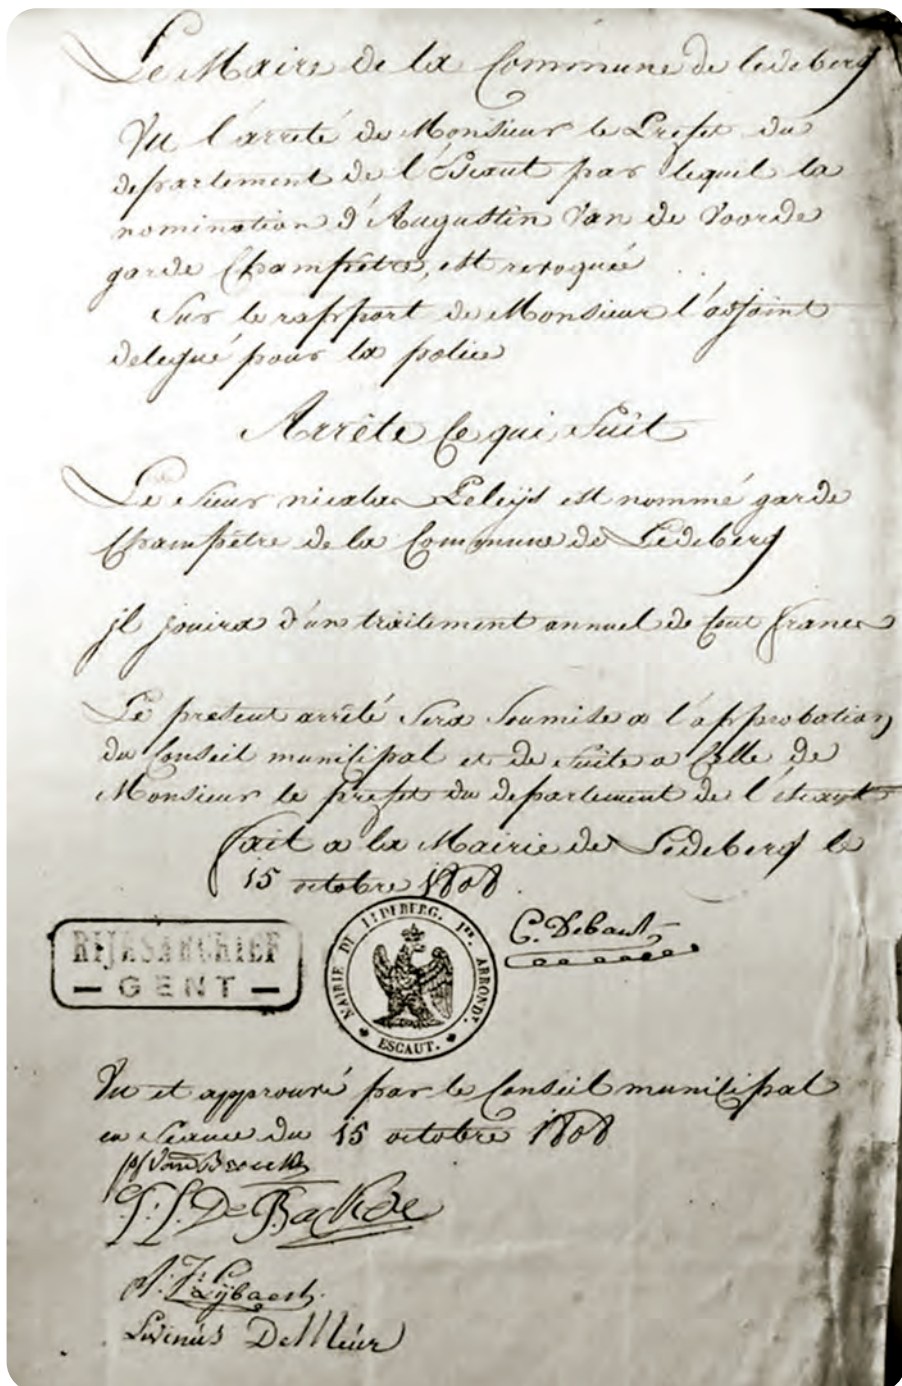 Le Maire de la Commune de Ledeberg
Vu l'arreté de Monsieur le Prefet du
departement de l'Escaut par lequel la
nomination d'Augustin Van de Voorde
garde Champetre, est revoquée
Sur le rapport de Monsieur l'adjoint
delegué pour la police
Arrête Ce qui Suit
Le Sieur nicolas est nommé garde
Champêtre de la Commune de Ledeberg
jl jouira d'un traitement annuel de Cent francs
Le present arrêté Sera Soumise a l'approbation
du Conseil municipal et de Suite a Celle de
Monsieur le prefet du departement de l'escaut
fait a la Mairie de Ledeberg le
15 octobre 1808
C. Debaut
RIJKSARCHIEF
— GENT —
MAIRIE DE LEDEBERG. Ier. ARRONDt.
ESCAUT.
Vu et approuvé par le Conseil municipal
en Séance du 15 octobre 1808
De Backere
Lybaert
Livinus De Meur